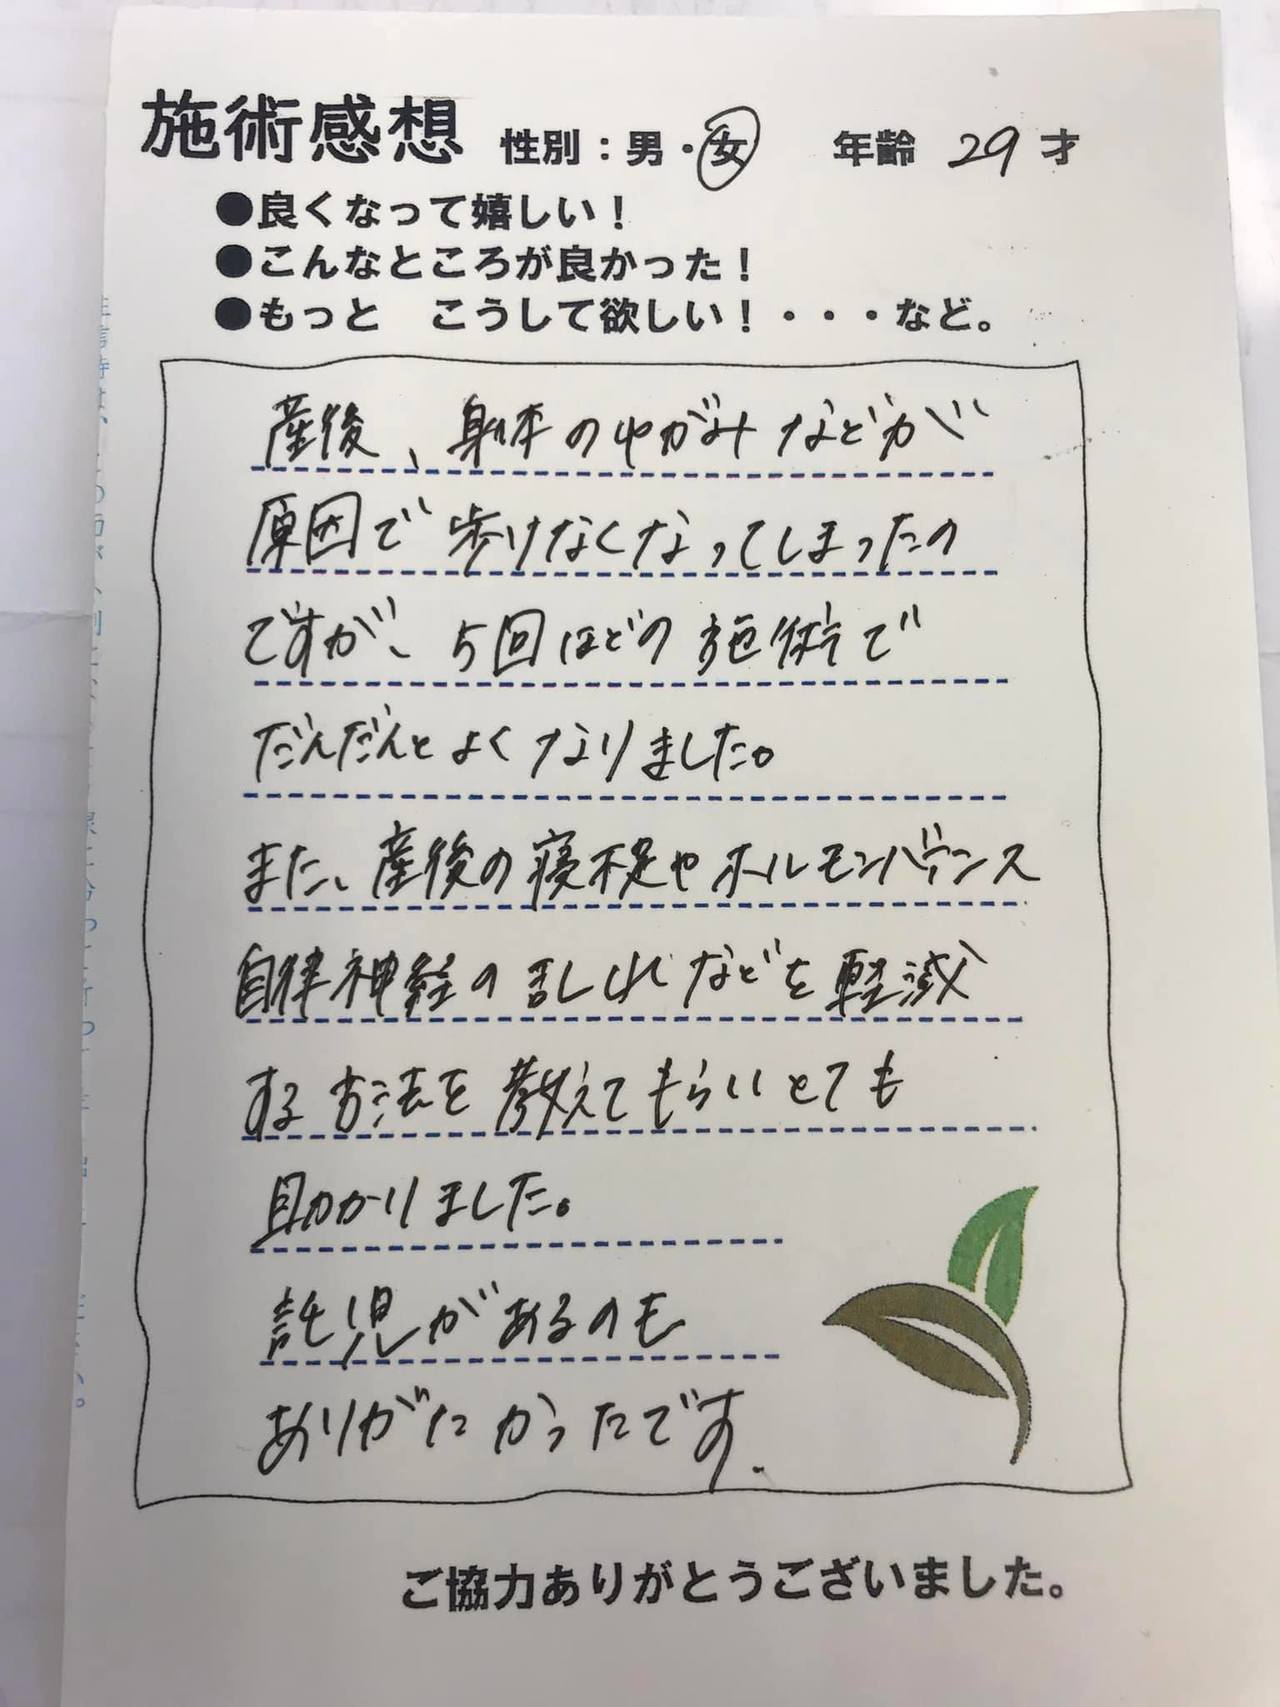 施術感想 性別：男・女 年齢 29 才
●良くなって嬉しい！
●こんなところが良かった！
●もっと こうして欲しい！・・・など。
産後、身体のゆがみなどが
原因で歩けなくなってしまったの
ですが、5回ほどの施術で
だんだんとよくなりました。
また、産後の寝不足やホルモンバランス
自律神経の乱れなどを軽減
する方法を教えてもらいとても
助かりました。
託児があるのも
ありがたかったです.
ご協力ありがとうございました。